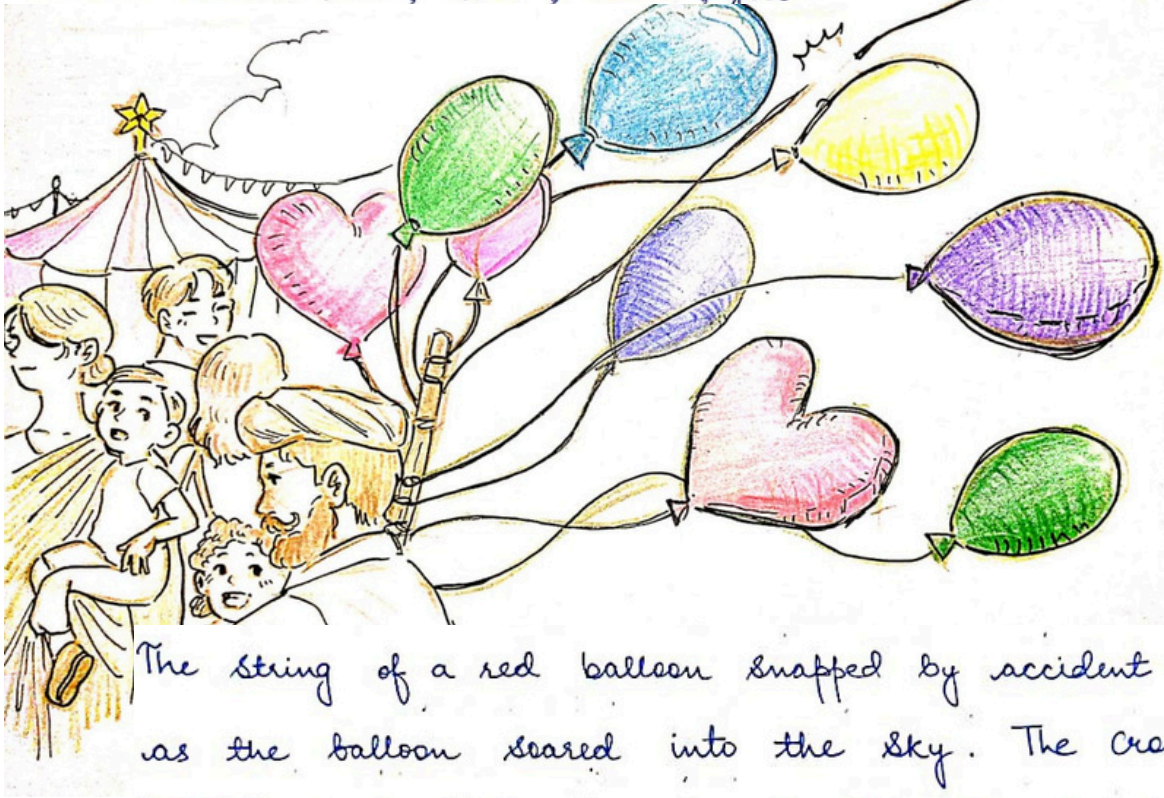 The string of a red balloon snapped by accident
as the balloon soared into the sky. The